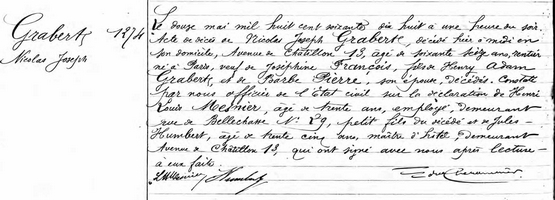 Grabert 1274
Nicolas Joseph
Le douze mai mil huit cent soixante dix huit à une heure du soir.
Acte de décès de Nicolas Joseph Grabert, décédé hier à midi en
son domicile, Avenue de Châtillon 13, âgé de soixante seize ans, rentier
né à Paris, veuf de Joséphine François, fils de Henry Adam
Grabert, et de Barbe Pierre, son épouse, décédés. Constaté
par nous officier de l'Etat civil sur la déclaration de Henri
Louis Mesnier, âgé de trente ans, employé, demeurant
rue de Bellechasse N° 29, petit fils du décédé et de Jules
Humbert, âgé de trente cinq ans, maître d'hôtel, demeurant
Avenue de Châtillon 13, qui ont signé avec nous après lecture
à eux faite.
Humbert